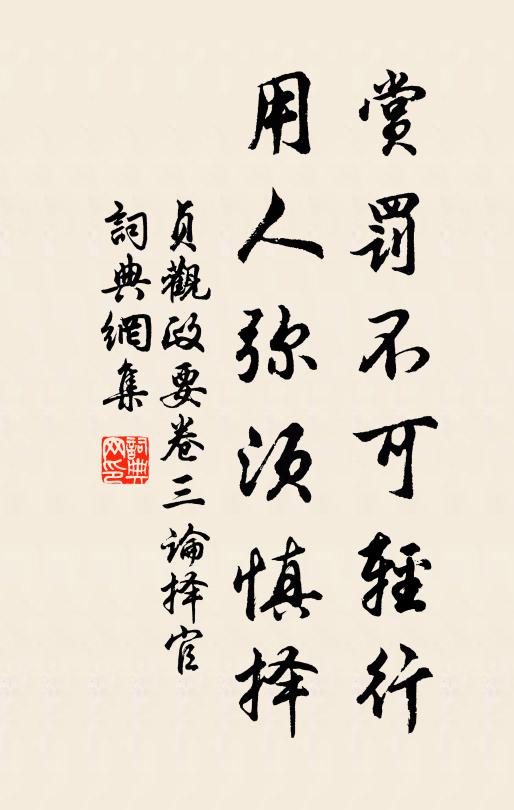 赏罚不可輕行
用人弥须慎择
贞觀政要卷三論择官
詞典網集
詞典網印